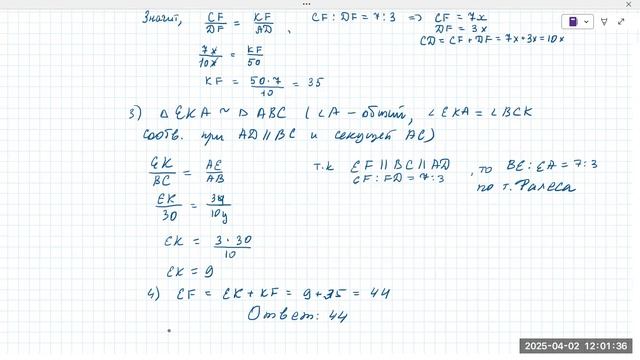 Значит, CF/DF = KF/AD, CF : DF = 7 : 3 => CF = 7x
DF = 3x
CD = CF + DF = 7x + 3x = 10x
7x/10x = KF/50
KF = 50·7/10 = 35
3) △ EKA ~ △ ABC (∠A – общий, ∠EKA = ∠BCK
соотв. при AD || BC и секущей AC)
EK/BC = AE/AB
т.к EF || BC || AD
CF : FD = 7 : 3
, то BE : EA = 7 : 3
по т. Фалеса
EK/30 = 3y/10y
EK = 3·30/10
EK = 9
4) EF = EK + KF = 9 + 35 = 44
Ответ: 44
2025-04-02 12:01:36